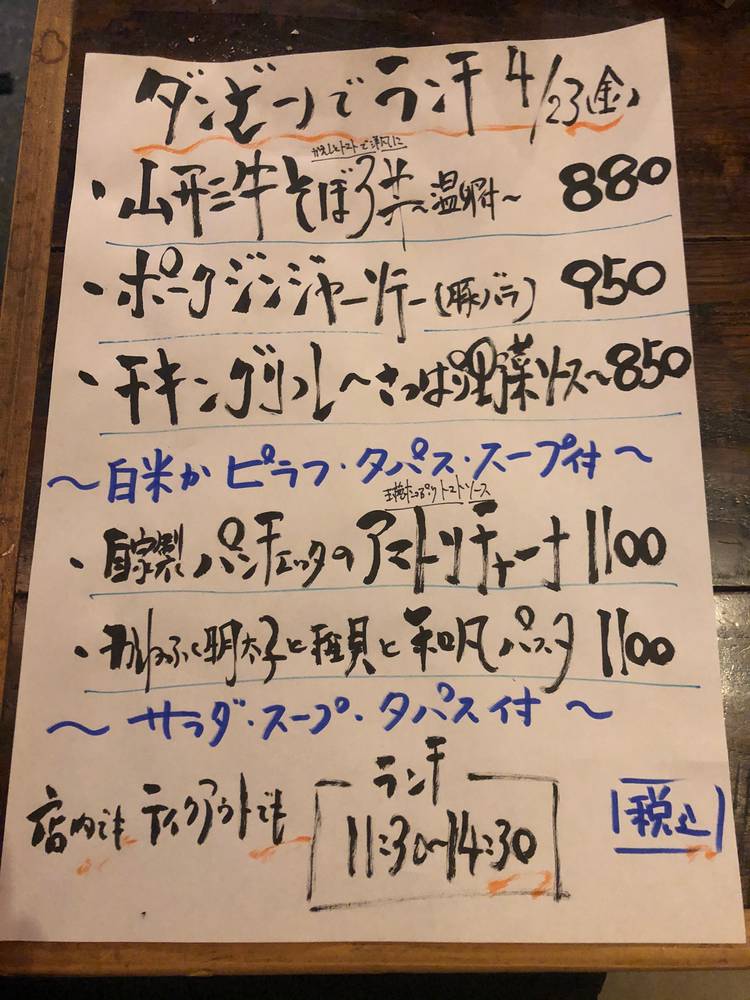 ダンボンでランチ 4/23(金)
かえしとトマトで洋風に
・山形牛そぼろ丼〜温卵付〜 880
・ポークジンジャーソテー(豚バラ) 950
・チキングリル〜さっぱり野菜ソース〜850
〜白米か ピラフ・タパス・スープ付〜
玉葱たっぷりトマトソース
・自家製パンチェッタのアマトリチャーナ 1100
・明太子と種貝と和風パスタ 1100
〜サラダ・スープ・タパス付〜
店内でもテイクアウトでも
ランチ
11:30〜14:30
税込